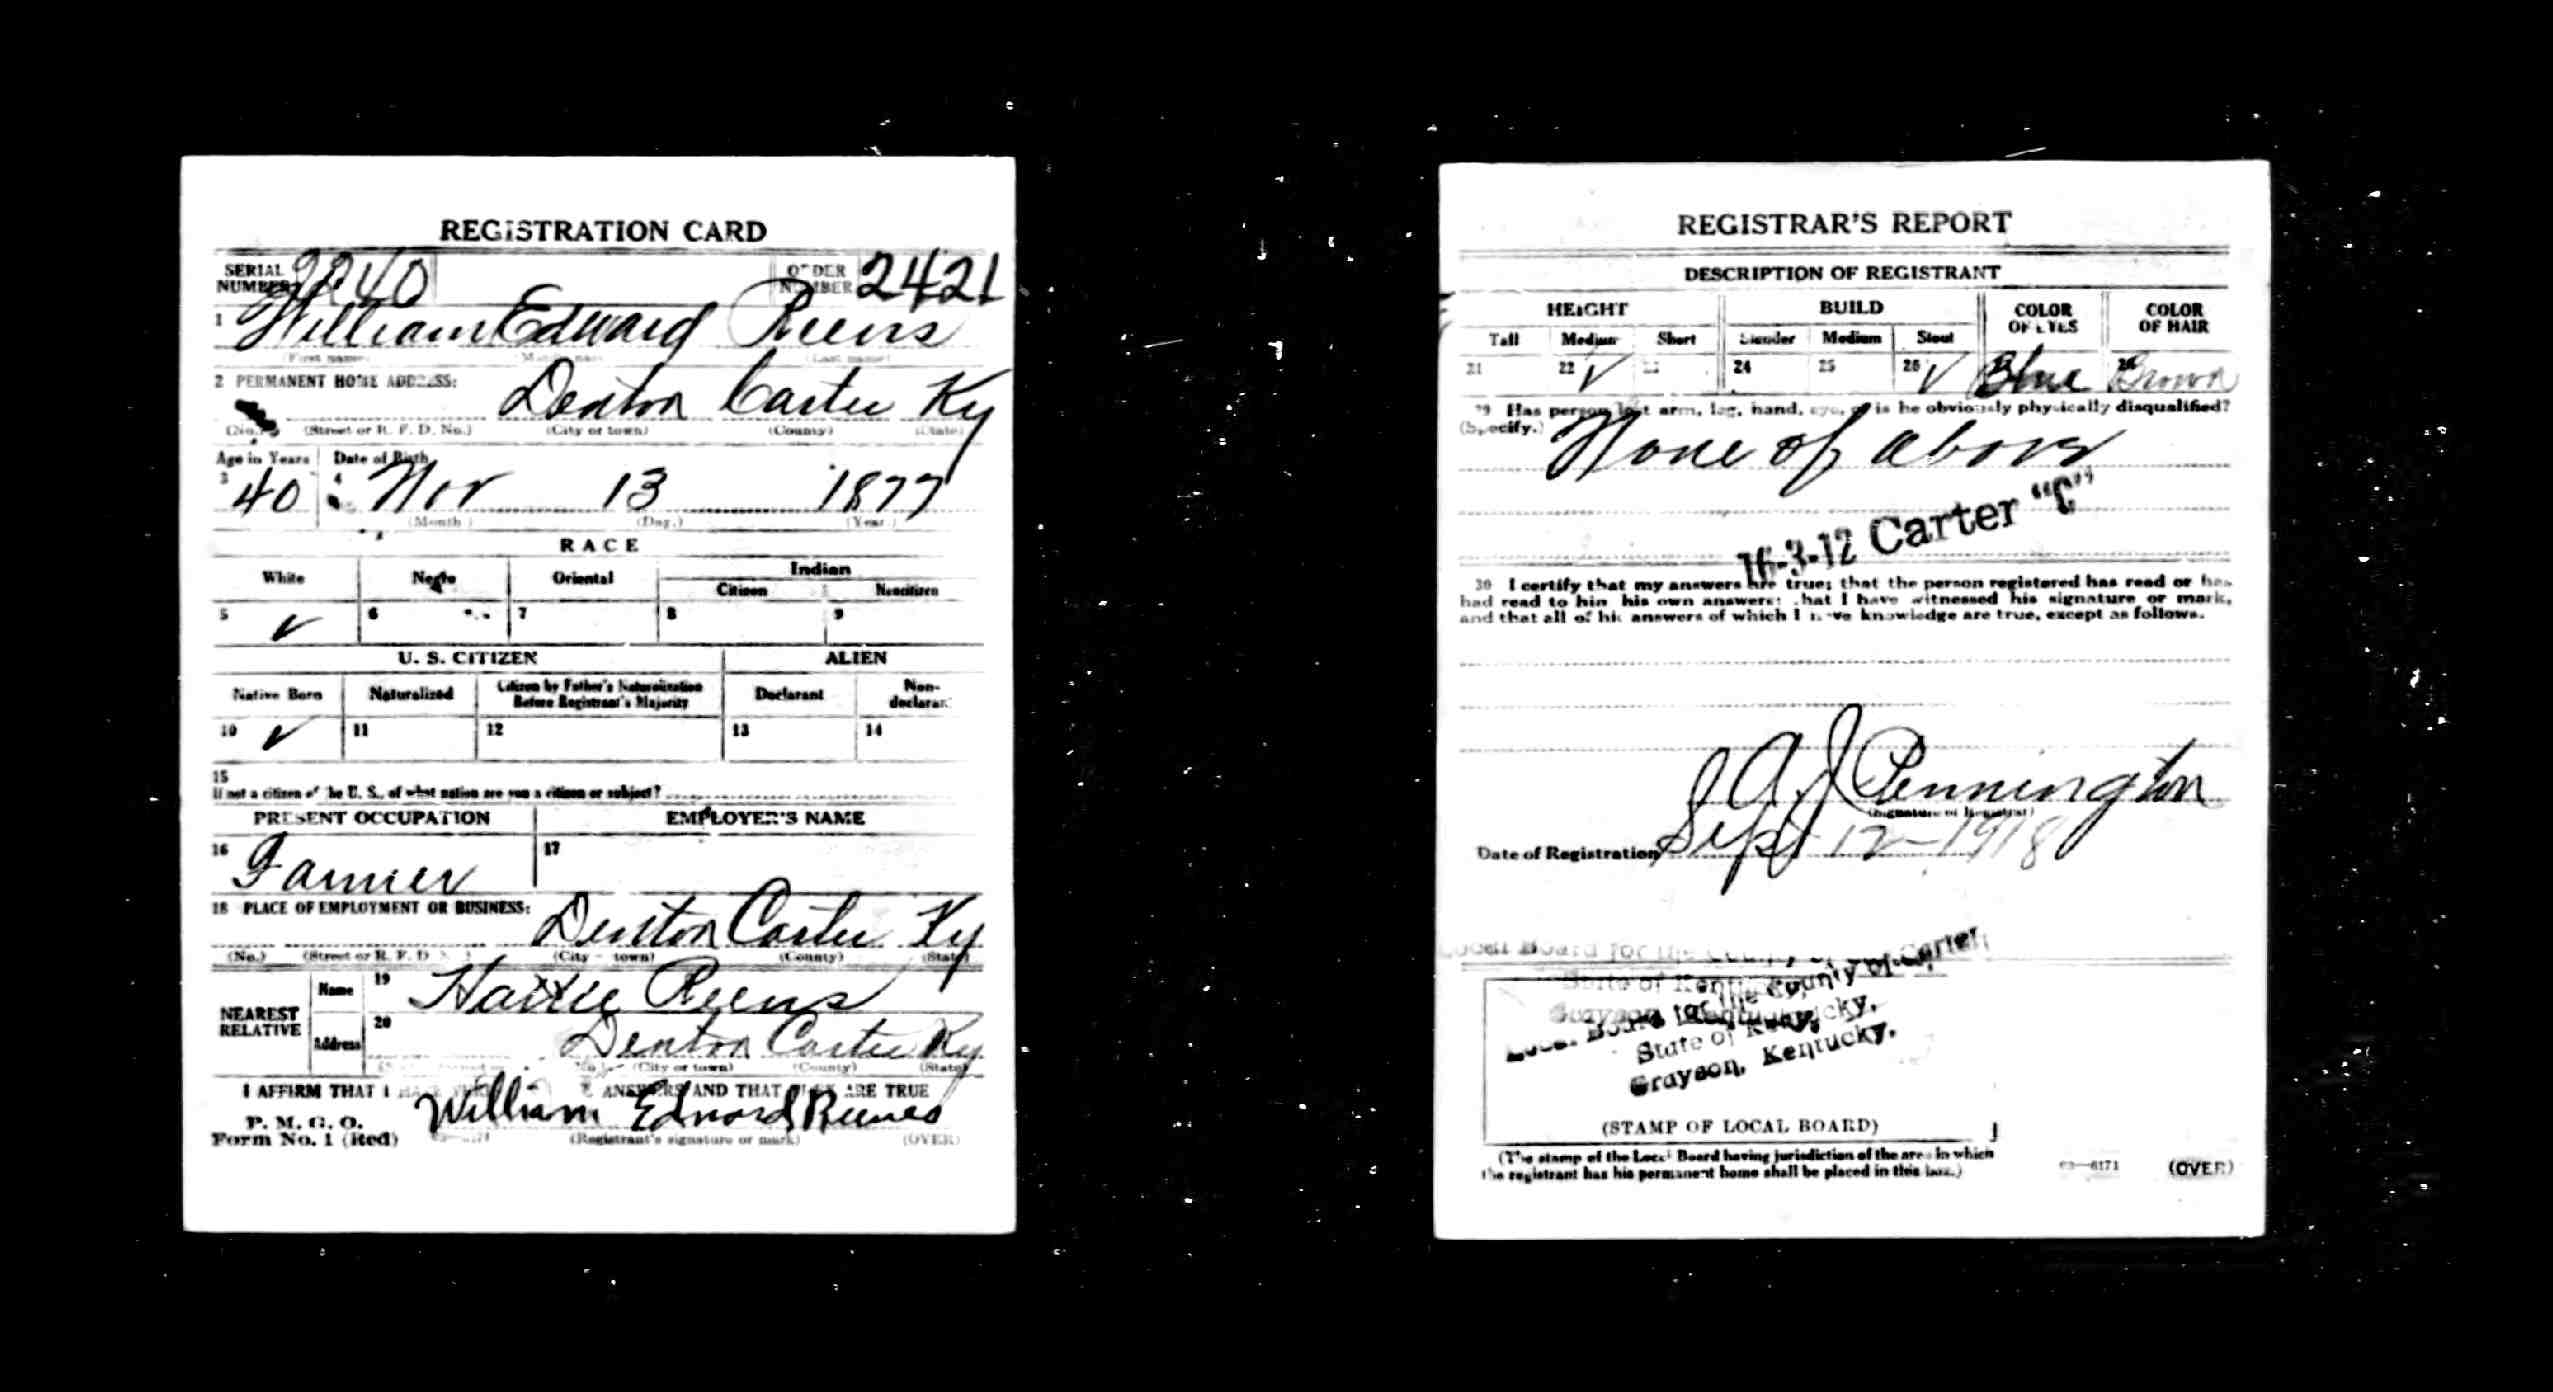 REGISTRATION CARD
SERIAL NUMBER 2240 ORDER NUMBER 2421
1 William Edward Reens
(First name) (Middle name) (Last name)
2 PERMANENT HOME ADDRESS:
Denton Carter Ky
(No.) (Street or R. F. D. No.) (City or town) (County) (State)
Age in Years Date of Birth
3 40 4 Nov 13 1877
(Month) (Day.) (Year.)
RACE
White Negro Oriental Indian
Citizen Noncitizen
5 ✓ 6 7 8 9
U. S. CITIZEN ALIEN
Native Born Naturalized Citizen by Father's Naturalization Before Registrant's Majority Declarant Non-declarant
10 ✓ 11 12 13 14
15
If not a citizen of the U. S., of what nation are you a citizen or subject?
PRESENT OCCUPATION EMPLOYER'S NAME
16 Farmer 17
18 PLACE OF EMPLOYMENT OR BUSINESS:
Denton Carter Ky
(No.) (Street or R. F. D. No.) (City or town) (County) (State)
NEAREST RELATIVE Name 19 Hattie Reens
Address 20 Denton Carter Ky
(City or town) (County) (State)
I AFFIRM THAT I HAVE ANSWERS AND THAT THEY ARE TRUE
P. M. G. O.
Form No. 1 (Red) William Edward Reeves
(Registrant's signature or mark) (OVER)
REGISTRAR'S REPORT
DESCRIPTION OF REGISTRANT
HEIGHT BUILD COLOR OF EYES COLOR OF HAIR
Tall Medium Short Slender Medium Stout
21 22 ✓ 23 24 25 26 ✓ Blue 28 Brown
29 Has person lost arm, leg, hand, eye, or is he obviously physically disqualified?
(Specify.) None of above
16-3-12 Carter "C"
30 I certify that my answers are true; that the person registered has read or has
had read to him his own answers; that I have witnessed his signature or mark,
and that all of his answers of which I have knowledge are true, except as follows.
A J Pennington
(Signature of Registrar)
Date of Registration Sept 12-1918
Local Board for the County of Carter,
State of Kentucky,
Grayson, Kentucky.
Local Board for the County of Carter,
State of Kentucky,
Grayson, Kentucky.
(STAMP OF LOCAL BOARD)
(The stamp of the Local Board having jurisdiction of the area in which
the registrant has his permanent home shall be placed in this box.)
03—6171 (OVER)